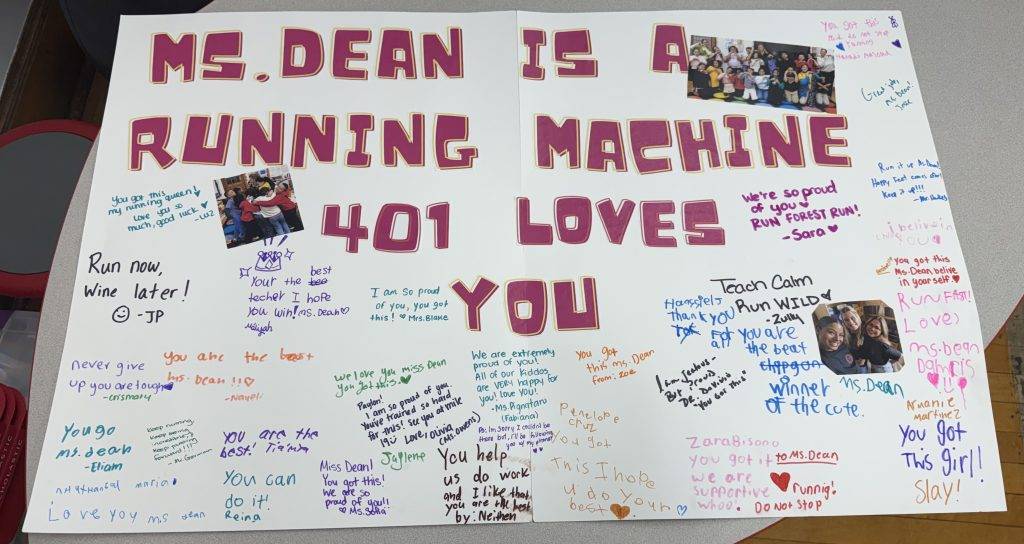 MS. DEAN IS A
RUNNING MACHINE
401 LOVES
YOU
You got this
my running queen!
Love you so
much, good luck ♥
-Luz
You got this
Great job,
Ms. Dean!
Jose
Run it up Ms. Dean!
Keep it up!!!
We're so proud
of you ♥
RUN FOREST RUN!
-Sara ♥
i believe in
you got this
Ms. Dean belive
in yourself
RUN FAST!
Love,
ms. Dean
Run now,
Wine later!
☺ -JP
Your the best
techer I hope
You win! ms. Dean ♡
I am so proud
of you, you got
this! ♡ Mrs. Blake
Teach Calm
Run WILD ♥
-Zully
Thank you
For
all
you are
the beat
winner
of the cute.
Ms. Dean
never give
up you are tough
You are the best
Ms. Dean !!♡
We love you miss Dean
You got this.
Payton!
I am so proud of you.
You've trained so hard
for this! See you at mile
19 ☺ Love: Olivia
(Ms. Owens)
We are extremely
proud of you!
All of our kiddos
are very happy for
you! love you!
-Ms. Pignataro
(Fabiana)
Ps: Im Sorry I couldn't be
there but, i'll be following
you on my phone!
you got
this ms. Dean
from: zoe
-You got this"
Penelope
cruz
You got
This I hope
u do your
best
You go
ms. dean
-Eliam
keep running,
keep being
incredible,
keep pushing
forward!!!
-Ms. German
You are the
best.
Jaylene
You can
do it!
Reina
Miss Dean!
You got this!
We are so
proud of you!!
♡ Ms. Sofia
You help
us do work
and I like that
you are the best
by: Neithen
Nathanael maria
Love you ms dean
Zara Bisono
you got it to Ms. DEAN
we are
supportive
whoo!
running!
DO NOT STOP
Arianie
martinez
You got
This girl!
Slay!